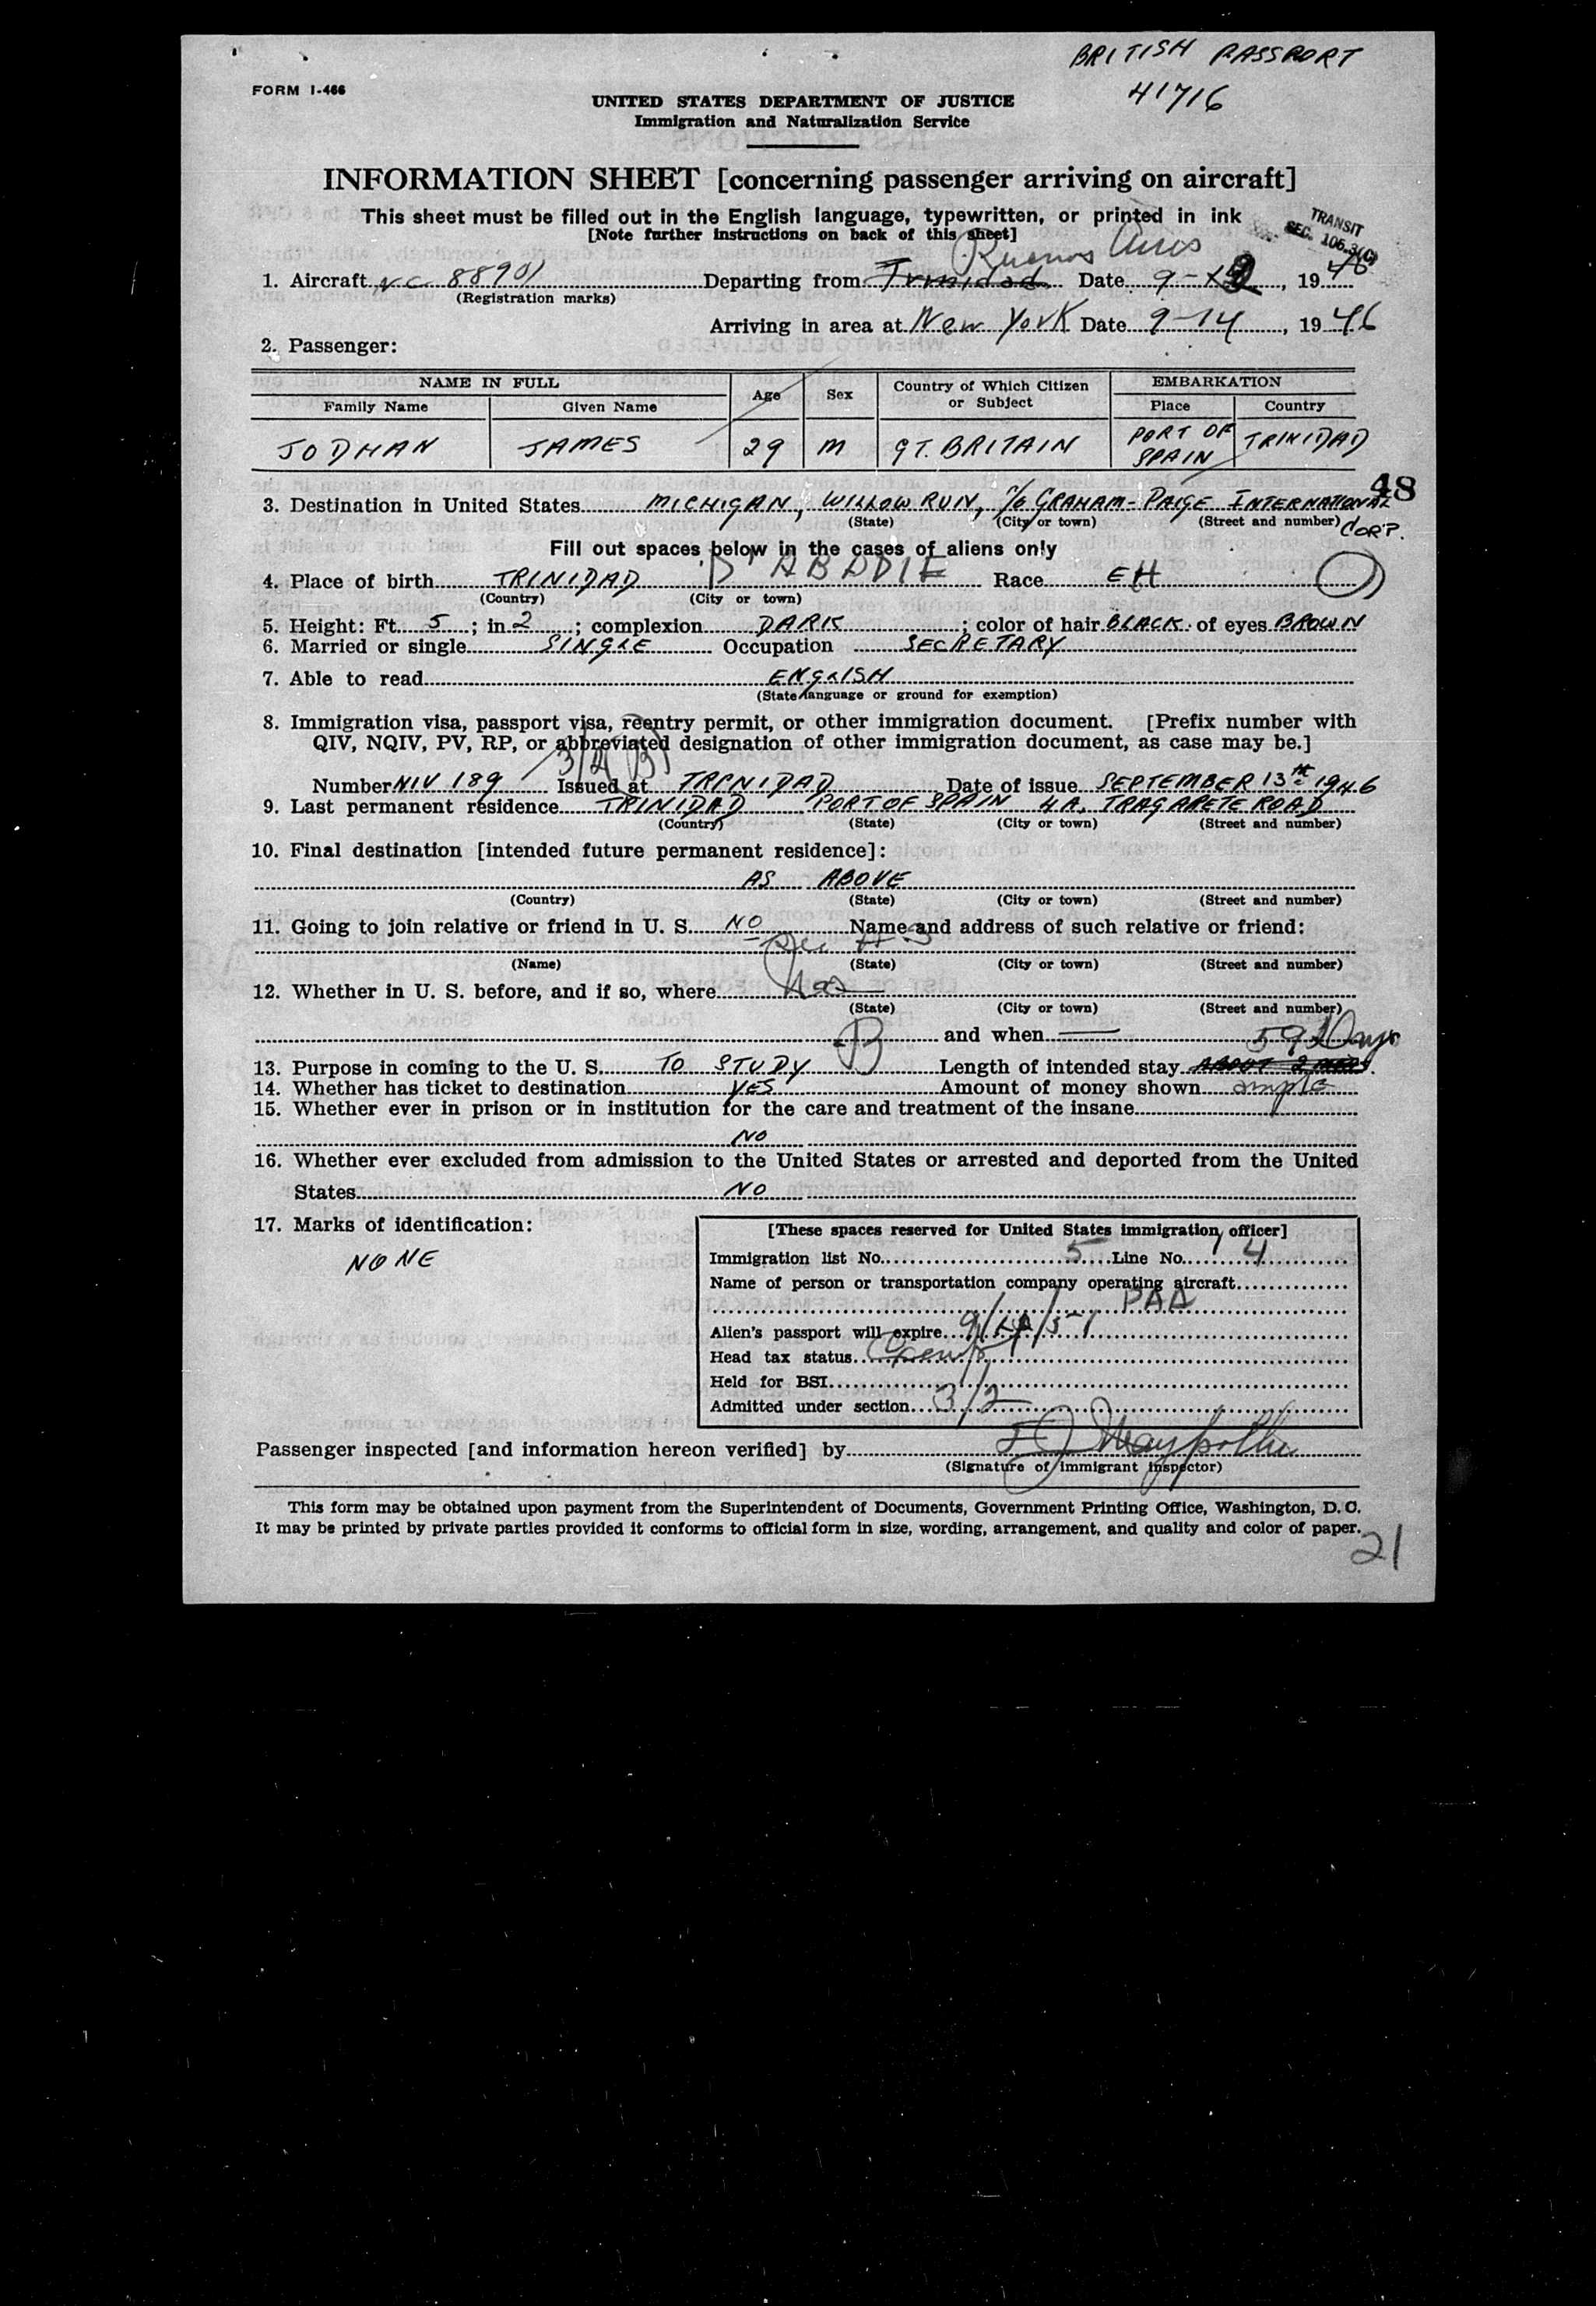 BRITISH PASSPORT
41716
FORM I-466
UNITED STATES DEPARTMENT OF JUSTICE
Immigration and Naturalization Service
INFORMATION SHEET [concerning passenger arriving on aircraft]
This sheet must be filled out in the English language, typewritten, or printed in ink
[Note further instructions on back of this sheet]
TRANSIT
SEC. 105.3(C)
Buenos Aires
1. Aircraft NC 88901 Departing from Trinidad Date 9- 1946
(Registration marks)
Arriving in area at New York Date 9-14, 1946
2. Passenger:
NAME IN FULL Age Sex Country of Which Citizen or Subject EMBARKATION
Family Name Given Name Place Country
JODHAN JAMES 29 M GT. BRITAIN PORT OF SPAIN TRINIDAD
48
3. Destination in United States MICHIGAN, WILLOW RUN, c/o GRAHAM-PAIGE INTERNATIONAL CORP.
(State) (City or town) (Street and number)
Fill out spaces below in the cases of aliens only
4. Place of birth TRINIDAD D'ABADIE Race EH
(Country) (City or town)
5. Height: Ft. 5; in 2; complexion DARK; color of hair BLACK of eyes BROWN
6. Married or single SINGLE Occupation SECRETARY
7. Able to read ENGLISH
(State language or ground for exemption)
8. Immigration visa, passport visa, reentry permit, or other immigration document. [Prefix number with
QIV, NQIV, PV, RP, or abbreviated designation of other immigration document, as case may be.]
Number NIV 189 Issued at TRINIDAD Date of issue SEPTEMBER 13th 1946
9. Last permanent residence TRINIDAD PORT OF SPAIN 4A, TRAGARETE ROAD
(Country) (State) (City or town) (Street and number)
10. Final destination [intended future permanent residence]:
AS ABOVE
(Country) (State) (City or town) (Street and number)
11. Going to join relative or friend in U. S. NO Name and address of such relative or friend:
(Name) (State) (City or town) (Street and number)
12. Whether in U. S. before, and if so, where
(State) (City or town) (Street and number)
and when 59 Days
13. Purpose in coming to the U. S. TO STUDY B Length of intended stay
14. Whether has ticket to destination YES Amount of money shown ample
15. Whether ever in prison or in institution for the care and treatment of the insane
NO
16. Whether ever excluded from admission to the United States or arrested and deported from the United
States NO
17. Marks of identification:
NONE
[These spaces reserved for United States immigration officer]
Immigration list No. 5 Line No. 4
Name of person or transportation company operating aircraft
PAA
Alien's passport will expire 9/ /51
Head tax status
Held for BSI
Admitted under section 3/2
Passenger inspected [and information hereon verified] by
(Signature of immigrant inspector)
This form may be obtained upon payment from the Superintendent of Documents, Government Printing Office, Washington, D. C.
It may be printed by private parties provided it conforms to official form in size, wording, arrangement, and quality and color of paper.
21